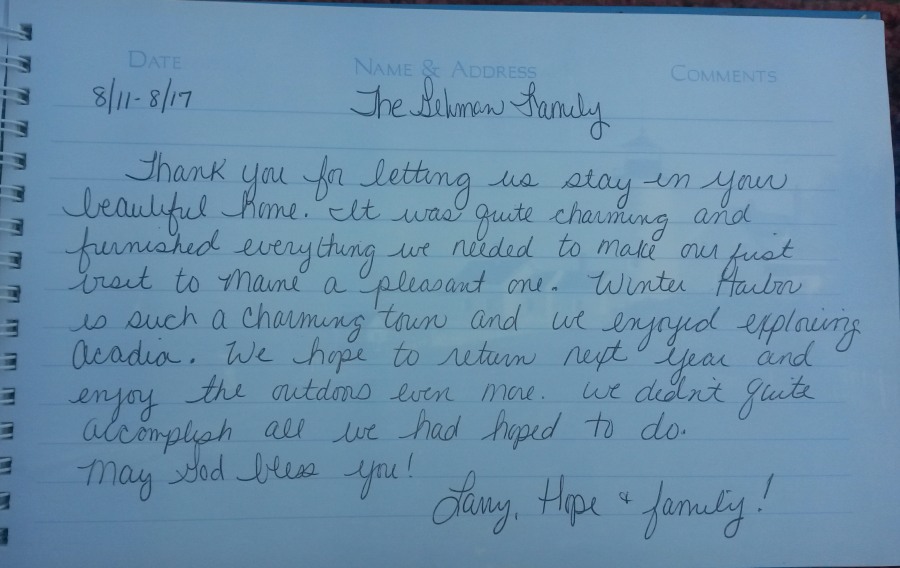 DATE NAME & ADDRESS COMMENTS
8/11-8/17 The Gehman Family
Thank you for letting us stay in your
beautiful home. It was quite charming and
furnished everything we needed to make our first
visit to Maine a pleasant one. Winter Harbor
is such a charming town and we enjoyed exploring
Acadia. We hope to return next year and
enjoy the outdoors even more. We didn't quite
accomplish all we had hoped to do.
May God bless you!
Larry, Hope & family!